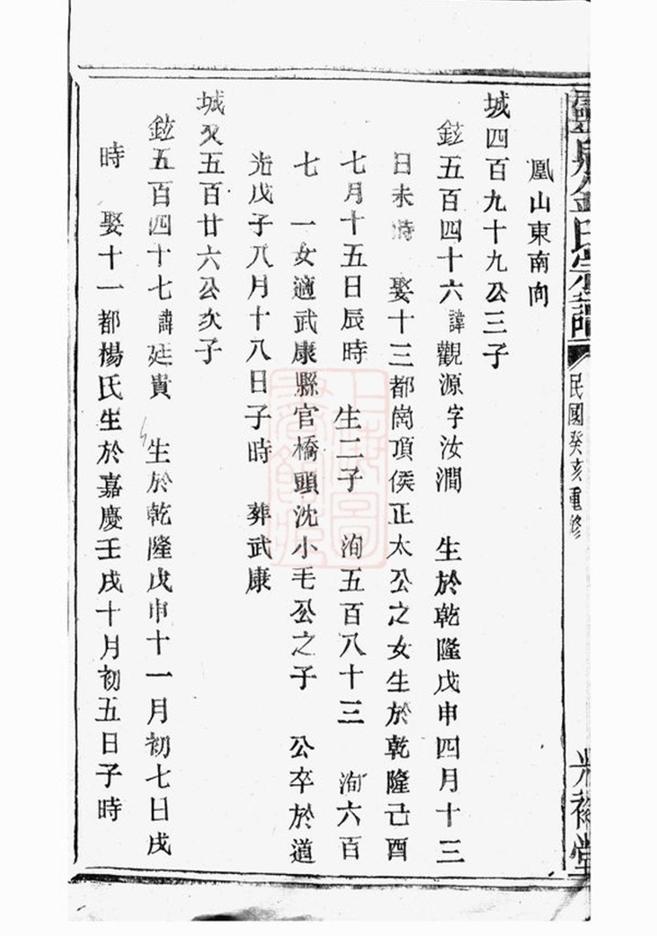 凰山東南向
城四百九十九公三子
鉉五百四十六諱觀源字汝澗　生於乾隆戊申四月十三
日未時　娶十三都崗頂侯正太公之女生於乾隆己酉
七月十五日辰時　生二子　洵五百八十三　洵六百
七　一女適武康縣官橋頭沈小毛公之子　公卒於道
光戊子八月十八日子時　葬武康
城又五百廿六公次子
鉉五百四十七諱廷貴　生於乾隆戊申十一月初七日戌
時　娶十一都楊氏生於嘉慶壬戌十月初五日子時
氏宗譜
民國癸亥重修
堂